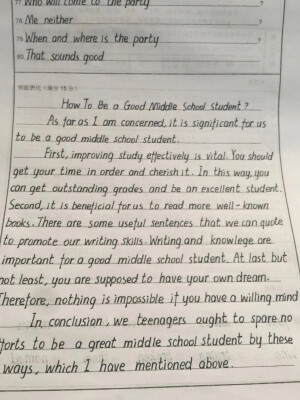 77. Who will come to the party ?
78. Me neither ?
79. When and where is the party ?
80. That sounds good
书面表达(满分 15 分)
How To Be a Good Middle School Student?
As far as I am concerned, it is significant for us
to be a good middle school student.
First, improving study effectively is vital. You should
get your time in order and cherish it. In this way, you
can get outstanding grades and be an excellent student.
Second, it is beneficial for us to read more well-known
books. There are some useful sentences that we can quote
to promote our writing skills. Writing and knowlege are
important for a good middle school student. At last but
not least, you are supposed to have your own dream.
Therefore, nothing is impossible if you have a willing mind
In conclusion, we teenagers ought to spare no
forts to be a great middle school student by these
ways, which I have mentioned above.